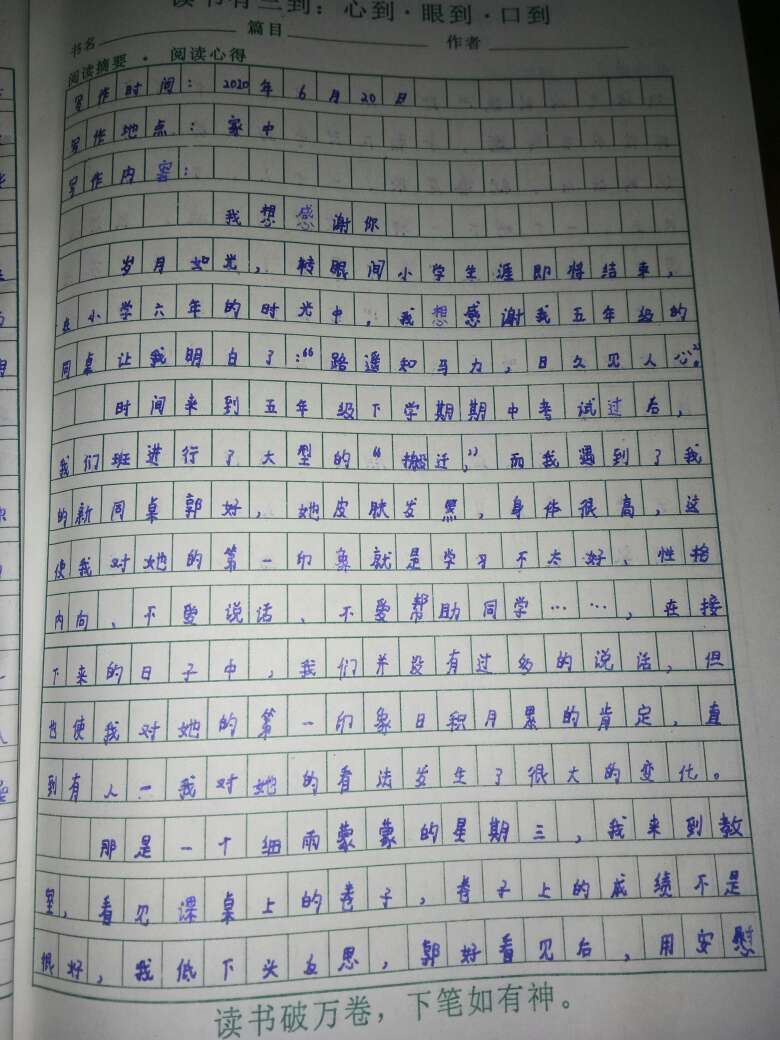 读书有三到：心到·眼到·口到
书名 篇目 作者
阅读摘要·阅读心得
写作时间：2020年6月20日
写作地点：家中
写作内容：
我想感谢你
岁月如光，转眼间小学生涯即将结束，
在小学六年的时光中，我想感谢我五年级的
同桌让我明白了：“路遥知马力，日久见人心”。
时间来到五年级下学期期中考试过后，
我们班进行了大型的“搬迁，”而我遇到了我
的新同桌郭好，她皮肤发黑，身体很高，这
使我对她的第一印象就是学习不太好、性格
内向、不爱说话、不爱帮助同学……，在接
下来的日子中，我们并没有过多的说话，但
也使我对她的第一印象日积月累的肯定，直
到有人一我对她的看法发生了很大的变化。
那是一个细雨蒙蒙的星期三，我来到教
室，看见课桌上的卷子，卷子上的成绩不是
很好，我低下头反思，郭好看见后，用安慰
读书破万卷，下笔如有神。